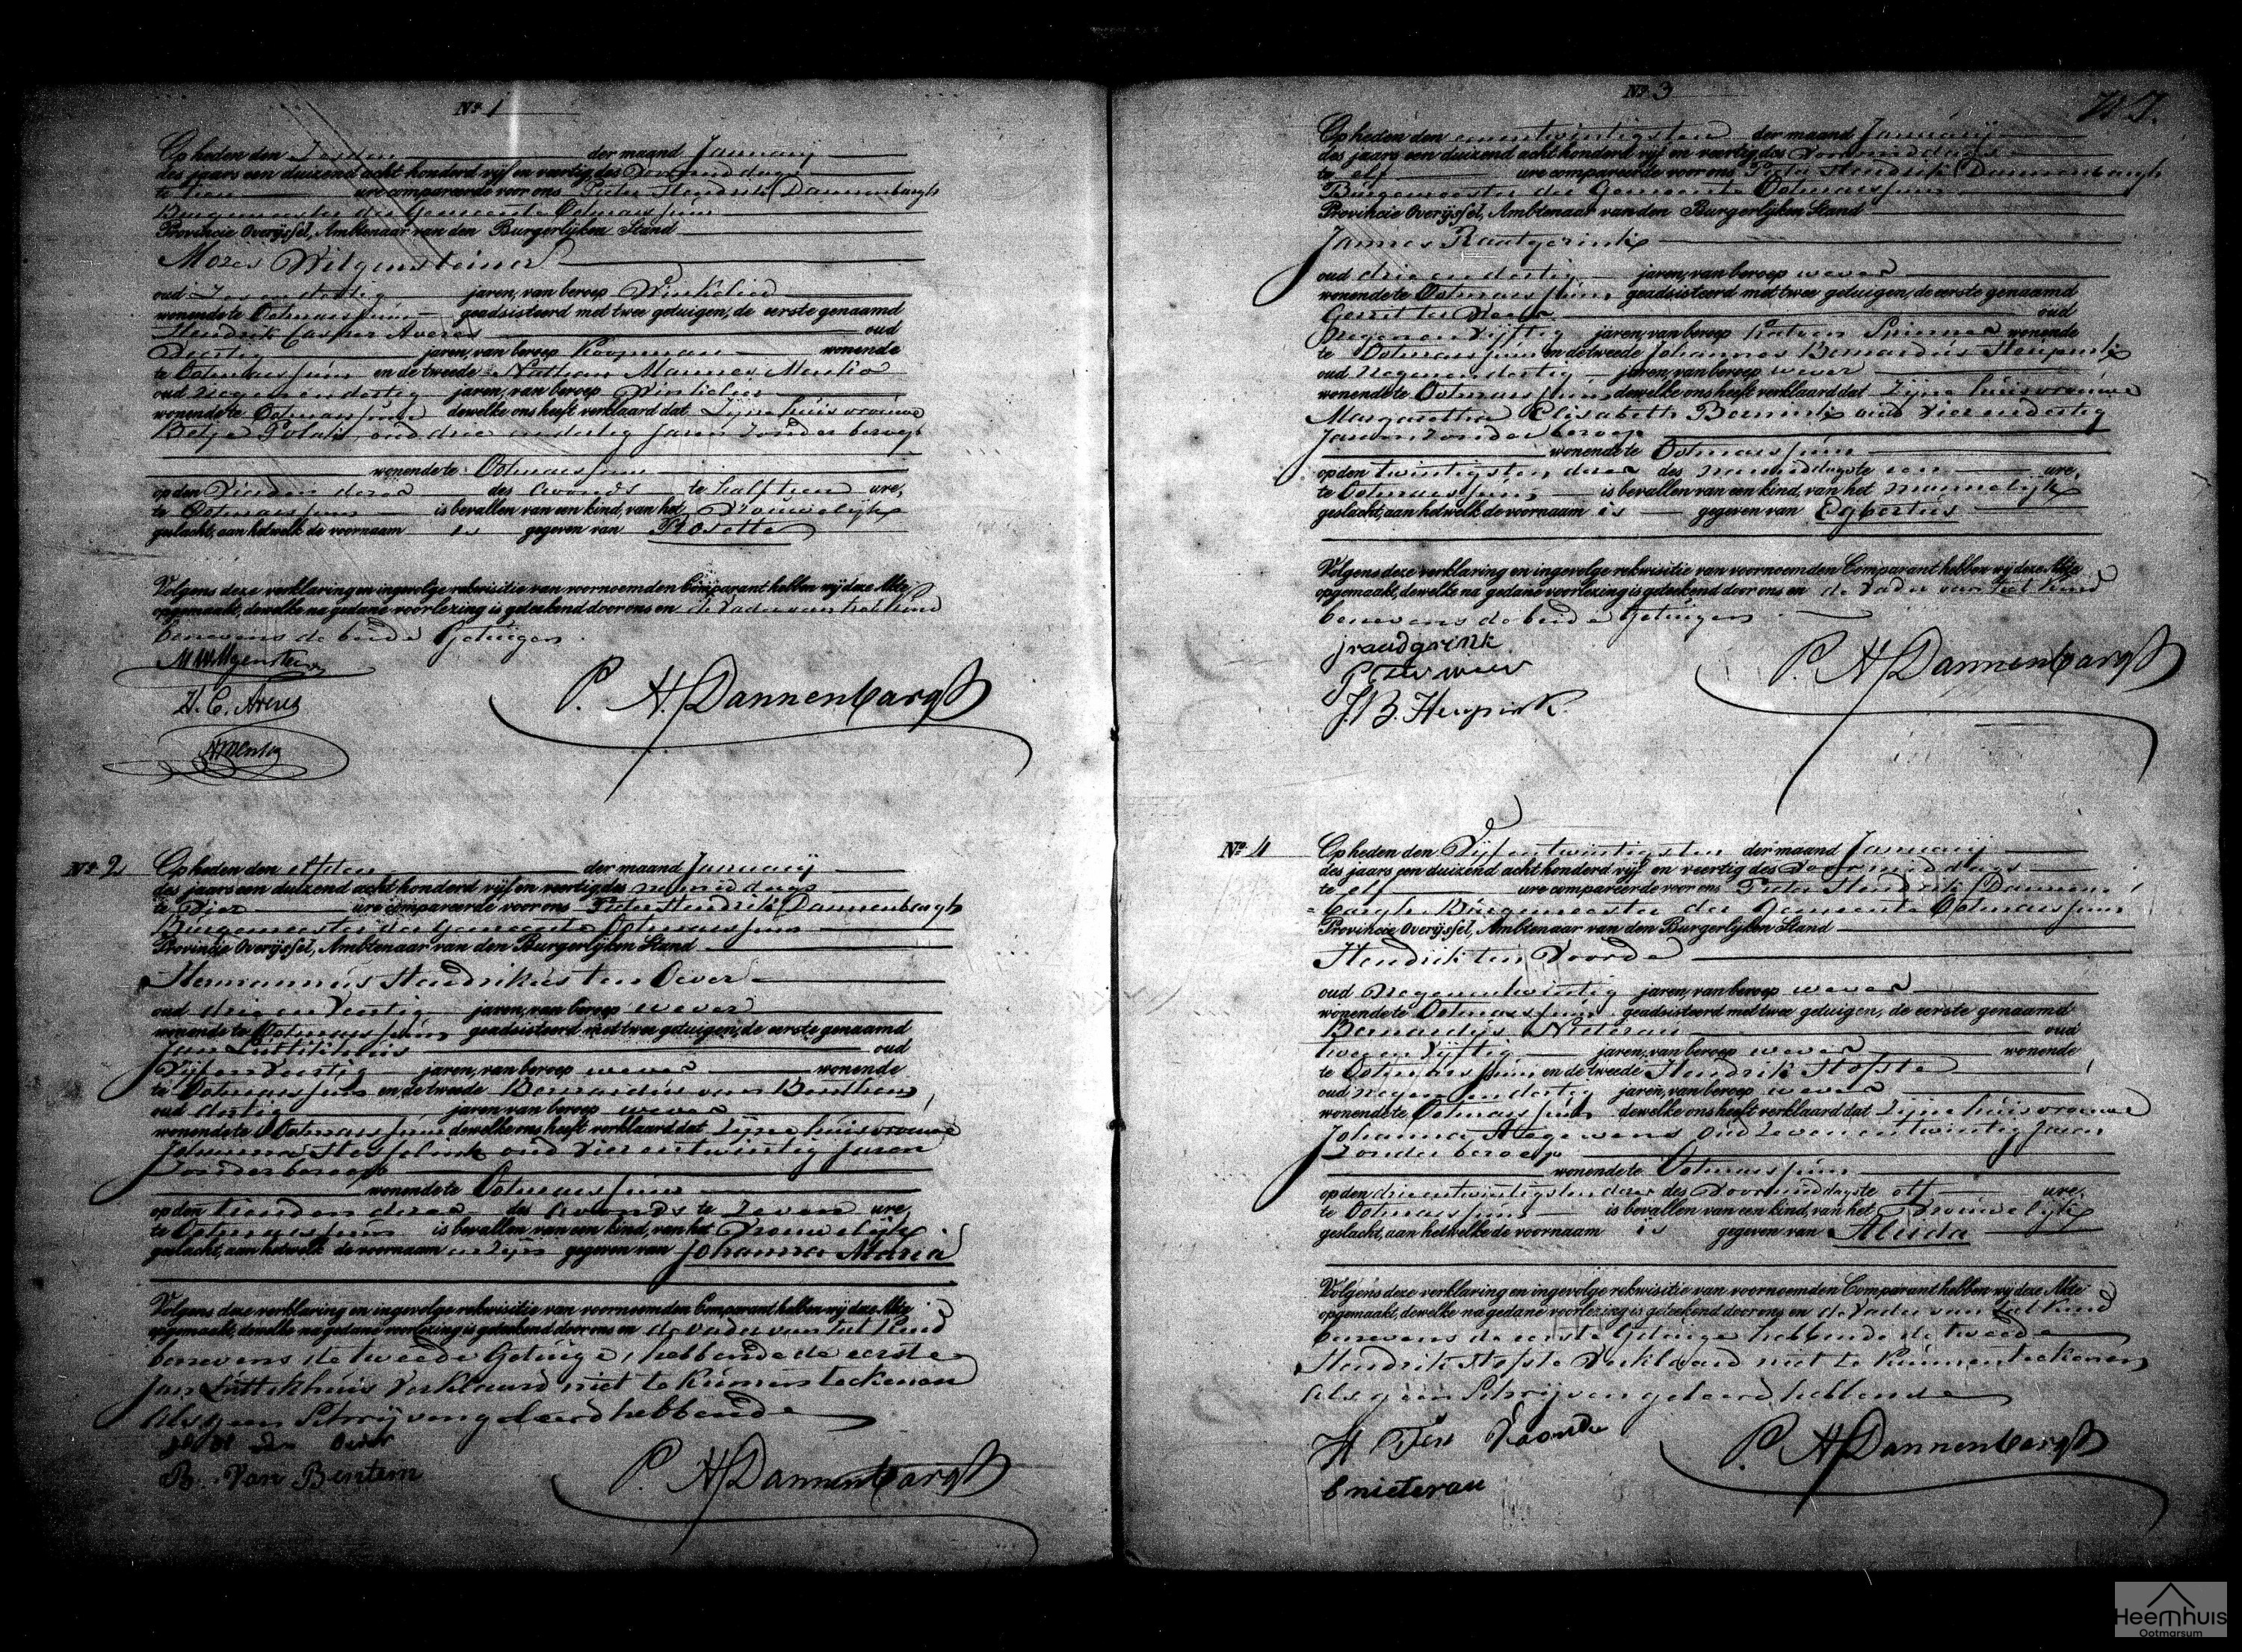 No. 1
Op heden den Zesden der maand Januarij
des jaars een duizend acht honderd vijf en veertig des Voormiddags
te tien ure compareerde voor ons Pieter Hendrik Dannenbargh
Burgemeester der Gemeente Ootmarssum
Provincie Overijssel, Ambtenaar van den Burgerlijken Stand
Mozes Wilgensteiner
oud Zes en dertig jaren, van beroep Winkelier
wonende te Ootmarssum geadsisteerd met twee getuigen, de eerste genaamd
Hendrik Casper Averes oud
Veertig jaren, van beroep Koopman wonende
te Ootmarssum en de tweede Nathan Mannes Menko
oud negen en dertig jaren, van beroep Winkelier
wonende te Ootmarssum dewelke ons heeft verklaard dat Zijne huisvrouwe
Betje Polak oud drie en dertig Jaren Zonder beroep
wonende te Ootmarssum
op den Vierden dezer des Avonds te half tien ure,
te Ootmarssum is bevallen van een kind, van het Vrouwelijke
geslacht, aan hetwelk de voornaam is gegeven van Rosette
Volgens deze verklaring en ingevolge rekwisitie van voornoemden Comparant hebben wij deze Akte
opgemaakt, dewelke na gedane voorlezing is geteekend door ons en de Vader van het Kind
benevens de beide Getuigen.
M Wilgenstein
H. C. Arens
P. H. Dannenbargh
NMMenko
No. 2
Op heden den elfden der maand Januarij
des jaars een duizend acht honderd vijf en veertig des namiddags
te Vier ure compareerde voor ons Pieter Hendrik Dannenbargh
Burgemeester der Gemeente Ootmarssum
Provincie Overijssel, Ambtenaar van den Burgerlijken Stand
Hermannus Hendrikus ten Oever
oud drie en jaren, van beroep wever
wonende te Ootmarssum geadsisteerd met twee getuigen, de eerste genaamd
Jan Luttikhuis oud
Vijf en Veertig jaren, van beroep wever wonende
te Ootmarssum en de tweede Bernardus van Benthem,
oud dertig jaren, van beroep wever
wonende te Ootmarssum dewelke ons heeft verklaard dat Zijne huisvrouwe
Johanna oud Vier en twintig Jaren
Zonder beroep
wonende te Ootmarssum
op den tienden dezer des Avonds te Zeven ure,
te Ootmarssum is bevallen van een kind, van het Vrouwelijke
geslacht, aan hetwelk de voornaamen zijn gegeven van Johanna Maria
Volgens deze verklaring en ingevolge rekwisitie van voornoemden Comparant hebben wij deze Akte
opgemaakt, dewelke na gedane voorlezing is geteekend door ons en de Vader van het Kind
benevens de tweede Getuige, hebbende de eerste
Jan Luttikhuis Verklaard niet te Kunnen teekenen
als geen Schrijven geleerd hebbende
H H Oever
B. Van Bentem
P. H. Dannenbargh
No. 3
Op heden den eenentwintigsten der maand Januarij
des jaars een duizend acht honderd vijf en veertig des Voormiddags
te elf ure compareerde voor ons Pieter Hendrik Dannenbargh
Burgemeester der Gemeente Ootmarssum
Provincie Overijssel, Ambtenaar van den Burgerlijken Stand
Jannes Raatgerink
oud drie en dertig jaren, van beroep wever
wonende te Ootmarssum geadsisteerd met twee getuigen, de eerste genaamd
Gerrit ter oud
Negen en Vijftig jaren, van beroep Katoen Spinner wonende
te Ootmarssum en de tweede Johannes Bernardus Heupink
oud Negen en dertig jaren, van beroep wever
wonende te Ootmarssum dewelke ons heeft verklaard dat Zijne huisvrouwe
Margaretha Elisabeth Bernink oud Vier en dertig
Jaren Zonder beroep
wonende te Ootmarssum
op den twintigsten dezer des namiddags te een ure,
te Ootmarssum is bevallen van een kind, van het mannelijke
geslacht, aan hetwelk de voornaam is gegeven van Egbertus
Volgens deze verklaring en ingevolge rekwisitie van voornoemden Comparant hebben wij deze Akte
opgemaakt, dewelke na gedane voorlezing is geteekend door ons en de Vader van het Kind
benevens de beide Getuigen
jraadgerink
G Ter
J. B. Heupink
P. H. Dannenbargh
No. 4
Op heden den Vijfentwintigsten der maand Januarij
des jaars een duizend acht honderd vijf en veertig des Voormiddags
te elf ure compareerde voor ons Pieter Hendrik Dannen
bargh Burgemeester der Gemeente Ootmarssum
Provincie Overijssel, Ambtenaar van den Burgerlijken Stand
Hendrik ten Voorde
oud Negenentwintig jaren, van beroep wever
wonende te Ootmarssum geadsisteerd met twee getuigen, de eerste genaamd
Bernardus Nieterau oud
twee en Vijftig jaren, van beroep wever wonende
te Ootmarssum en de tweede Hendrik Hofste
oud negen en dertig jaren, van beroep wever
wonende te Ootmarssum dewelke ons heeft verklaard dat Zijne huisvrouwe
Johanna oud Zeven en twintig Jaren
Zonder beroep
wonende te Ootmarssum
op den drieentwintigsten dezer des Voormiddags te elf ure,
te Ootmarssum is bevallen van een kind, van het Vrouwelijke
geslacht, aan hetwelk de voornaam is gegeven van Aleida
Volgens deze verklaring en ingevolge rekwisitie van voornoemden Comparant hebben wij deze Akte
opgemaakt, dewelke na gedane voorlezing is geteekend door ons en de Vader van het Kind
benevens de eerste Getuige hebbende de tweede
Hendrik Hofste Verklaard niet te Kunnen teekenen
als geen Schrijven geleerd hebbende
H Ten Voorde
b nieterau
P. H. Dannenbargh
Heemhuis
Ootmarsum